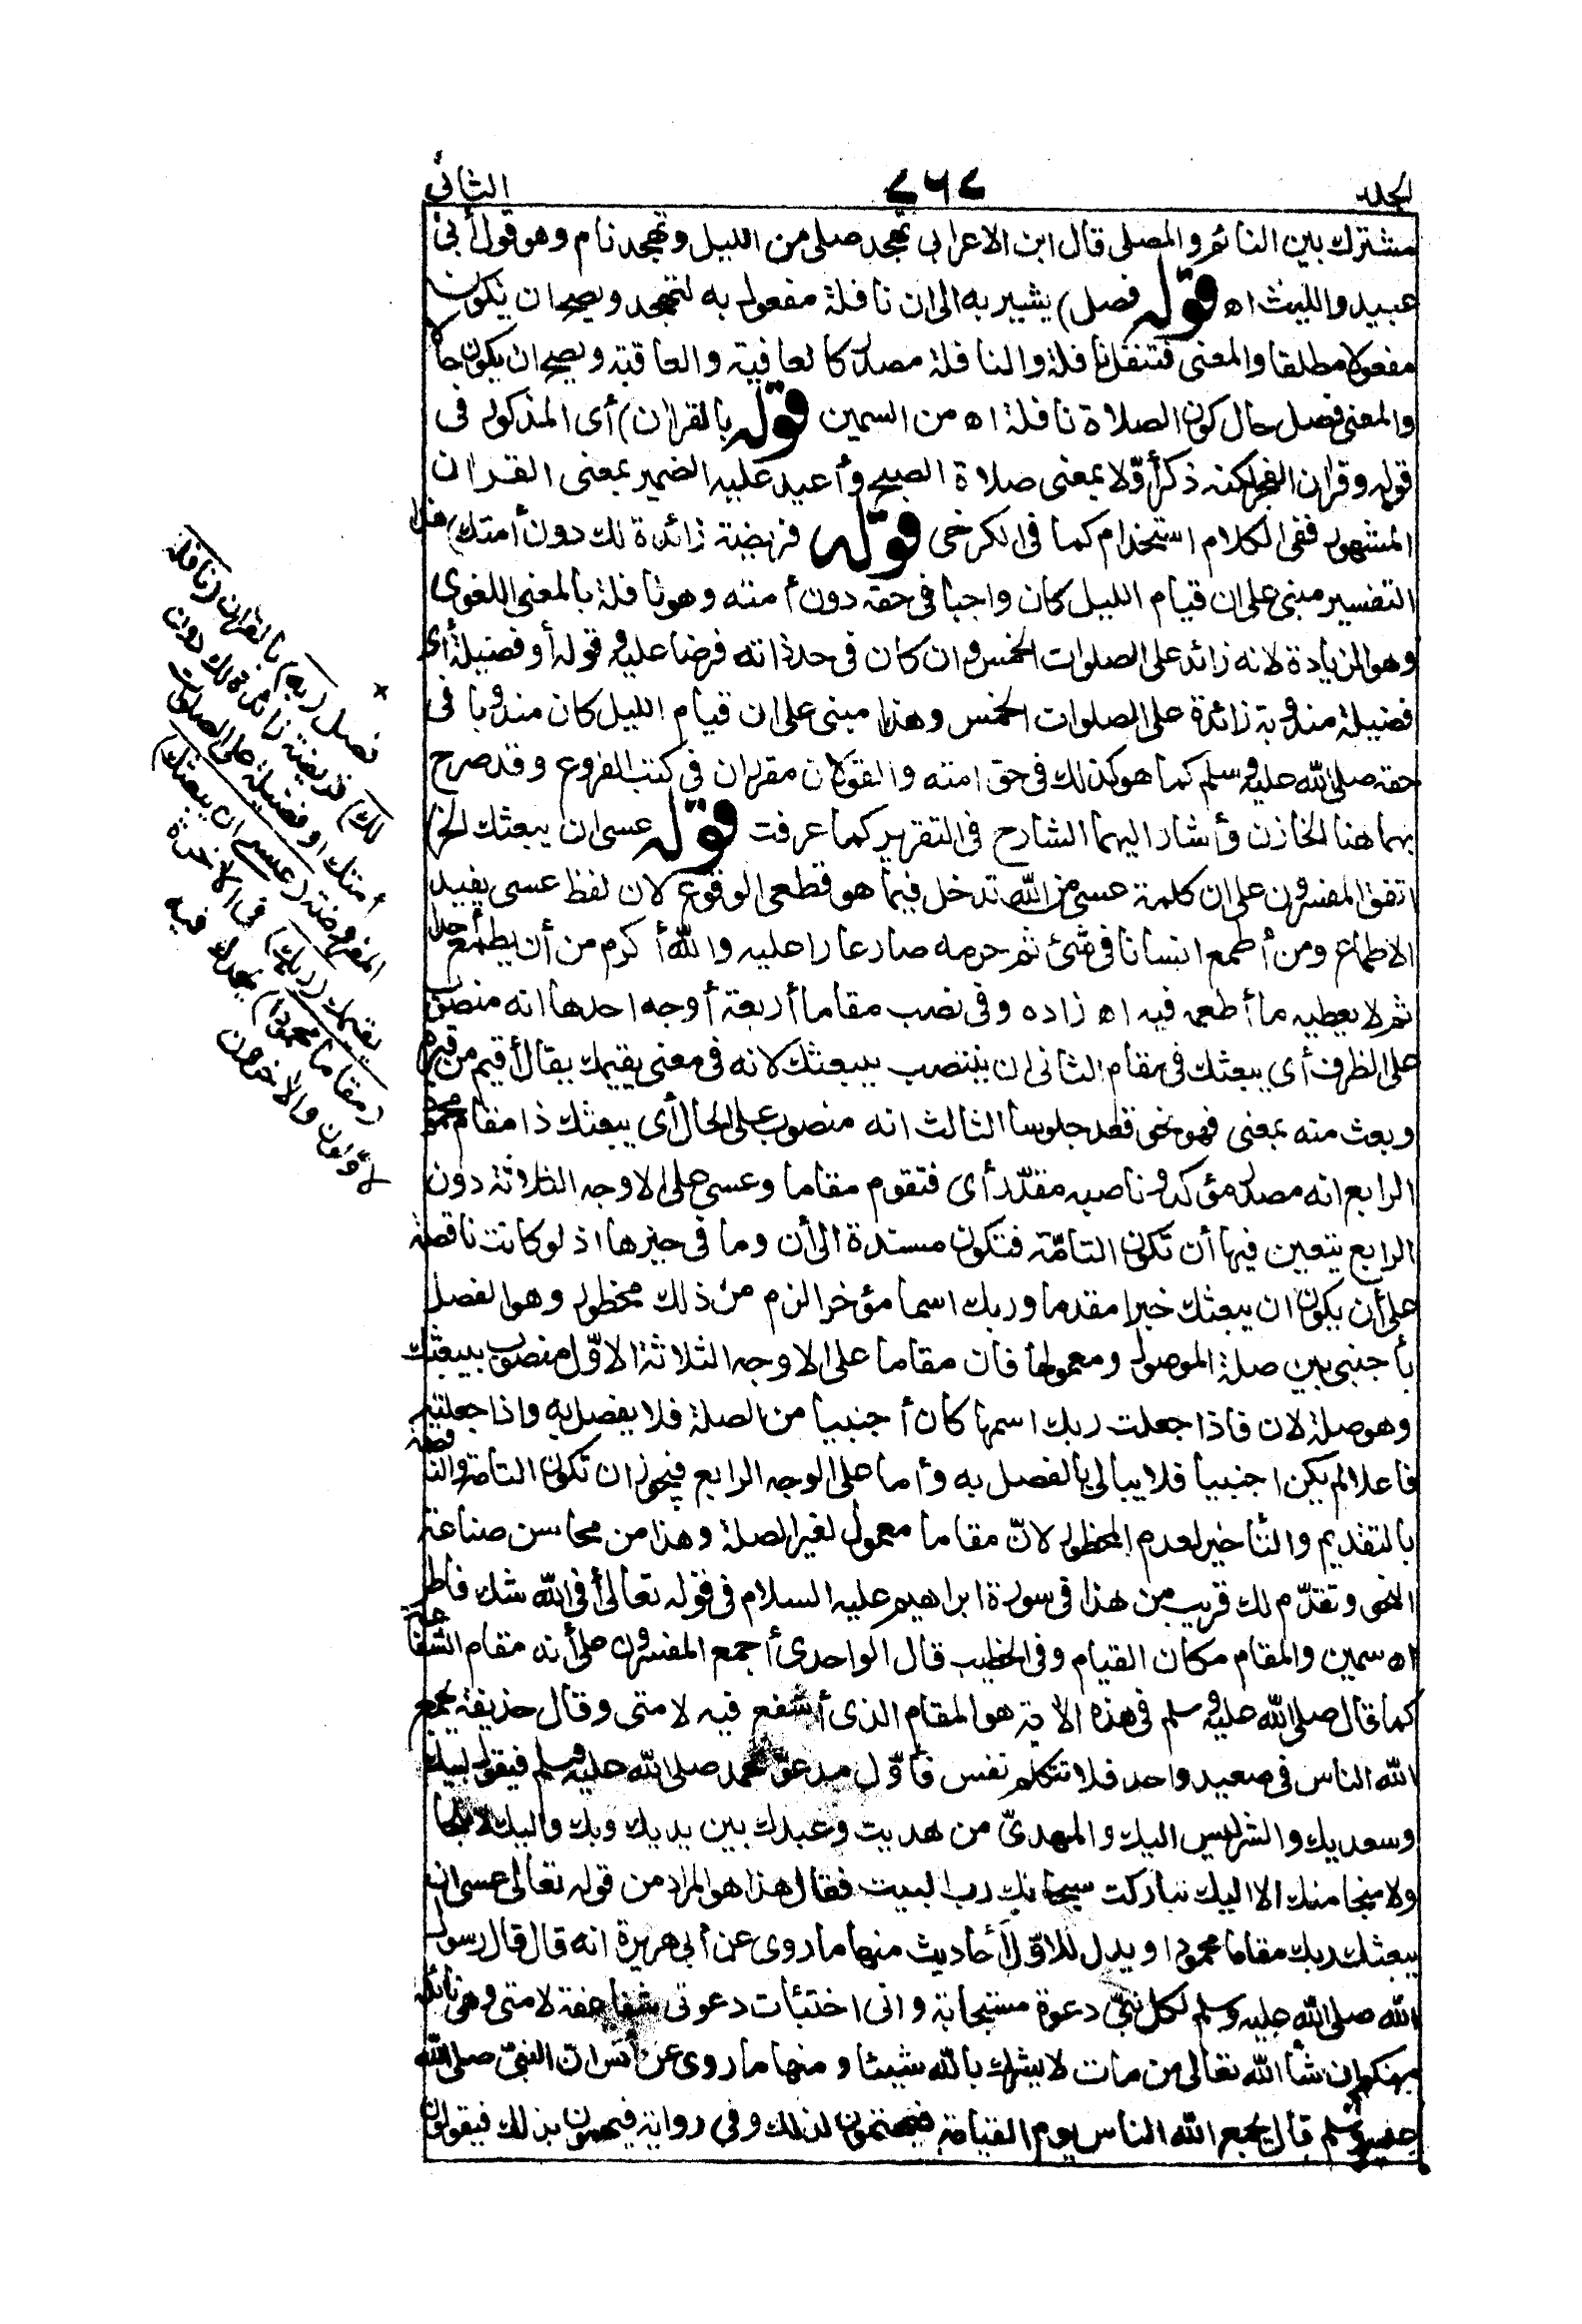 الجلد ٧٦٧ الثاني
مشترك بين النائم والمصلى قال ابن الاعرابى تهجد صلى من الليل وتهجد نام وهو قول أبى
عبيد والليث اه قوله فصل) يشير به الى ان نافلة مفعول به لتهجد ويصح ان يكون
مفعولا مطلقا والمعنى فتنفل نافلة والنافلة مصدر كالعافية والعاقبة ويصح ان يكون حالا
والمعنى فصل حال كون الصلاة نافلة اه من السمين قوله بالقران) أى المذكور فى
قوله وقران الفجر لكنه ذكر أوّلا بمعنى صلاة الصبح وأعيد عليه الضمير بمعنى القران
المشهور ففى الكلام استخدام كما فى الكرخى قوله فريضة زائدة لك دون أمتك) هذا
التفسير مبنى على ان قيام الليل كان واجبا فى حقه دون أمته وهو نافلة بالمعنى اللغوى
وهو الزيادة لانه زائد على الصلوات الخمس وان كان فى حد ذاته فرضا عليه وقوله أو فضيلة أى
فضيلة مندوبة زائدة على الصلوات الخمس وهذا مبنى على ان قيام الليل كان مندوبا فى
حقه صلى الله عليه وسلم كما هو كذلك فى حق امته والقولان مقرران فى كتب الفروع وقد صرح
بهما هنا الخازن وأشار اليهما الشارح فى التقرير كما عرفت قوله عسى ان يبعثك الخ)
اتفق المفسرون على ان كلمة عسى من الله تدخل فيما هو قطعى الوقوع لان لفظ عسى يفيد
الاطماع ومن أطمع انسانا فى شئ ثم حرمه صار عارا عليه والله أكرم من أن يطمع أحدا
ثم لا يعطيه ما أطعمه فيه اه زاده وفى نصب مقاما أربعة أوجه احدها انه منصوب
على الظرف أى يبعثك فى مقام الثانى ان ينتصب بيبعثك لانه فى معنى يقيمك يقال أقيم من قبره
وبعث منه بمعنى فهو نحو قعد جلوسا الثالث انه منصوب على الحال أى يبعثك ذا مقام محمود
الرابع انه مصدر مؤكد وناصبه مقدّر أى فتقوم مقاما وعسى على الاوجه الثلاثة دون
الرابع يتعين فيها أن تكون التامّة فتكون مسندة الى أن وما فى حيزها اذ لو كانت ناقصة
على أن يكون ان يبعثك خبرا مقدما وربك اسما مؤخرا لزم من ذلك محظور وهو الفصل
بأجنبى بين صلة الموصول ومعمولها فان مقاما على الاوجه الثلاثة الاوّل منصوب بيبعثك
وهو صلة لان فاذا جعلت ربك اسمها كان أجنبيا من الصلة فلا يفصل به واذا جعلته
فاعلا لم يكن اجنبيا فلا يبالى بالفصل به وأما على الوجه الرابع فيجوز ان تكون التامة والناقصة
بالتقديم والتأخير لعدم المحظور لانّ مقاما معمول لغير الصلة وهذا من محاسن صناعة
النحو وتقدّم لك قريب من هذا فى سورة ابراهيم عليه السلام فى قوله تعالى أفى الله شك فاطر
اه سمين والمقام مكان القيام وفى الخطيب قال الواحدى أجمع المفسرون على أنه مقام الشفاعة
كما قال صلى الله عليه وسلم فى هذه الاية هو المقام الذى أشفع فيه لامتى وقال حذيفة يجمع
الله الناس فى صعيد واحد فلا تتكلم نفس فأوّل مدعوّ محمد صلى الله عليه وسلم فيقول لبيك
وسعديك والشر ليس اليك والمهدىّ من هديت وعبدك بين يديك وبك واليك لا ملجا
ولا منجا منك الا اليك تباركت سبحانك رب البيت فقال هذا هو المراد من قوله تعالى عسى ان
يبعثك ربك مقاما محمودا ويدل للاوّل أحاديث منها ما روى عن أبى هريرة انه قال قال رسول
الله صلى الله عليه وسلم لكل نبىّ دعوة مستجابة وانى اختبأت دعوتى شفاعة لامتى وهى نائلة
منكم ان شاء الله تعالى من مات لا يشرك بالله شيئا ومنها ما روى عن أنس ان النبىّ صلى الله
عليه وسلم قال يجمع الله الناس يوم القيامة فيهتمون لذلك وفى رواية فيلهمون بذلك فيقولون
فصل (به) بالقران (نافلة
لك) فريضة زائدة لك دون
أمتك او فضيلة على الصلوات
المفروضة (عسى ان يبعثك)
يقيمك (ربك) فى الاخرة
(مقاما محمودا) يحمدك فيه
الاوّلون والاخرون